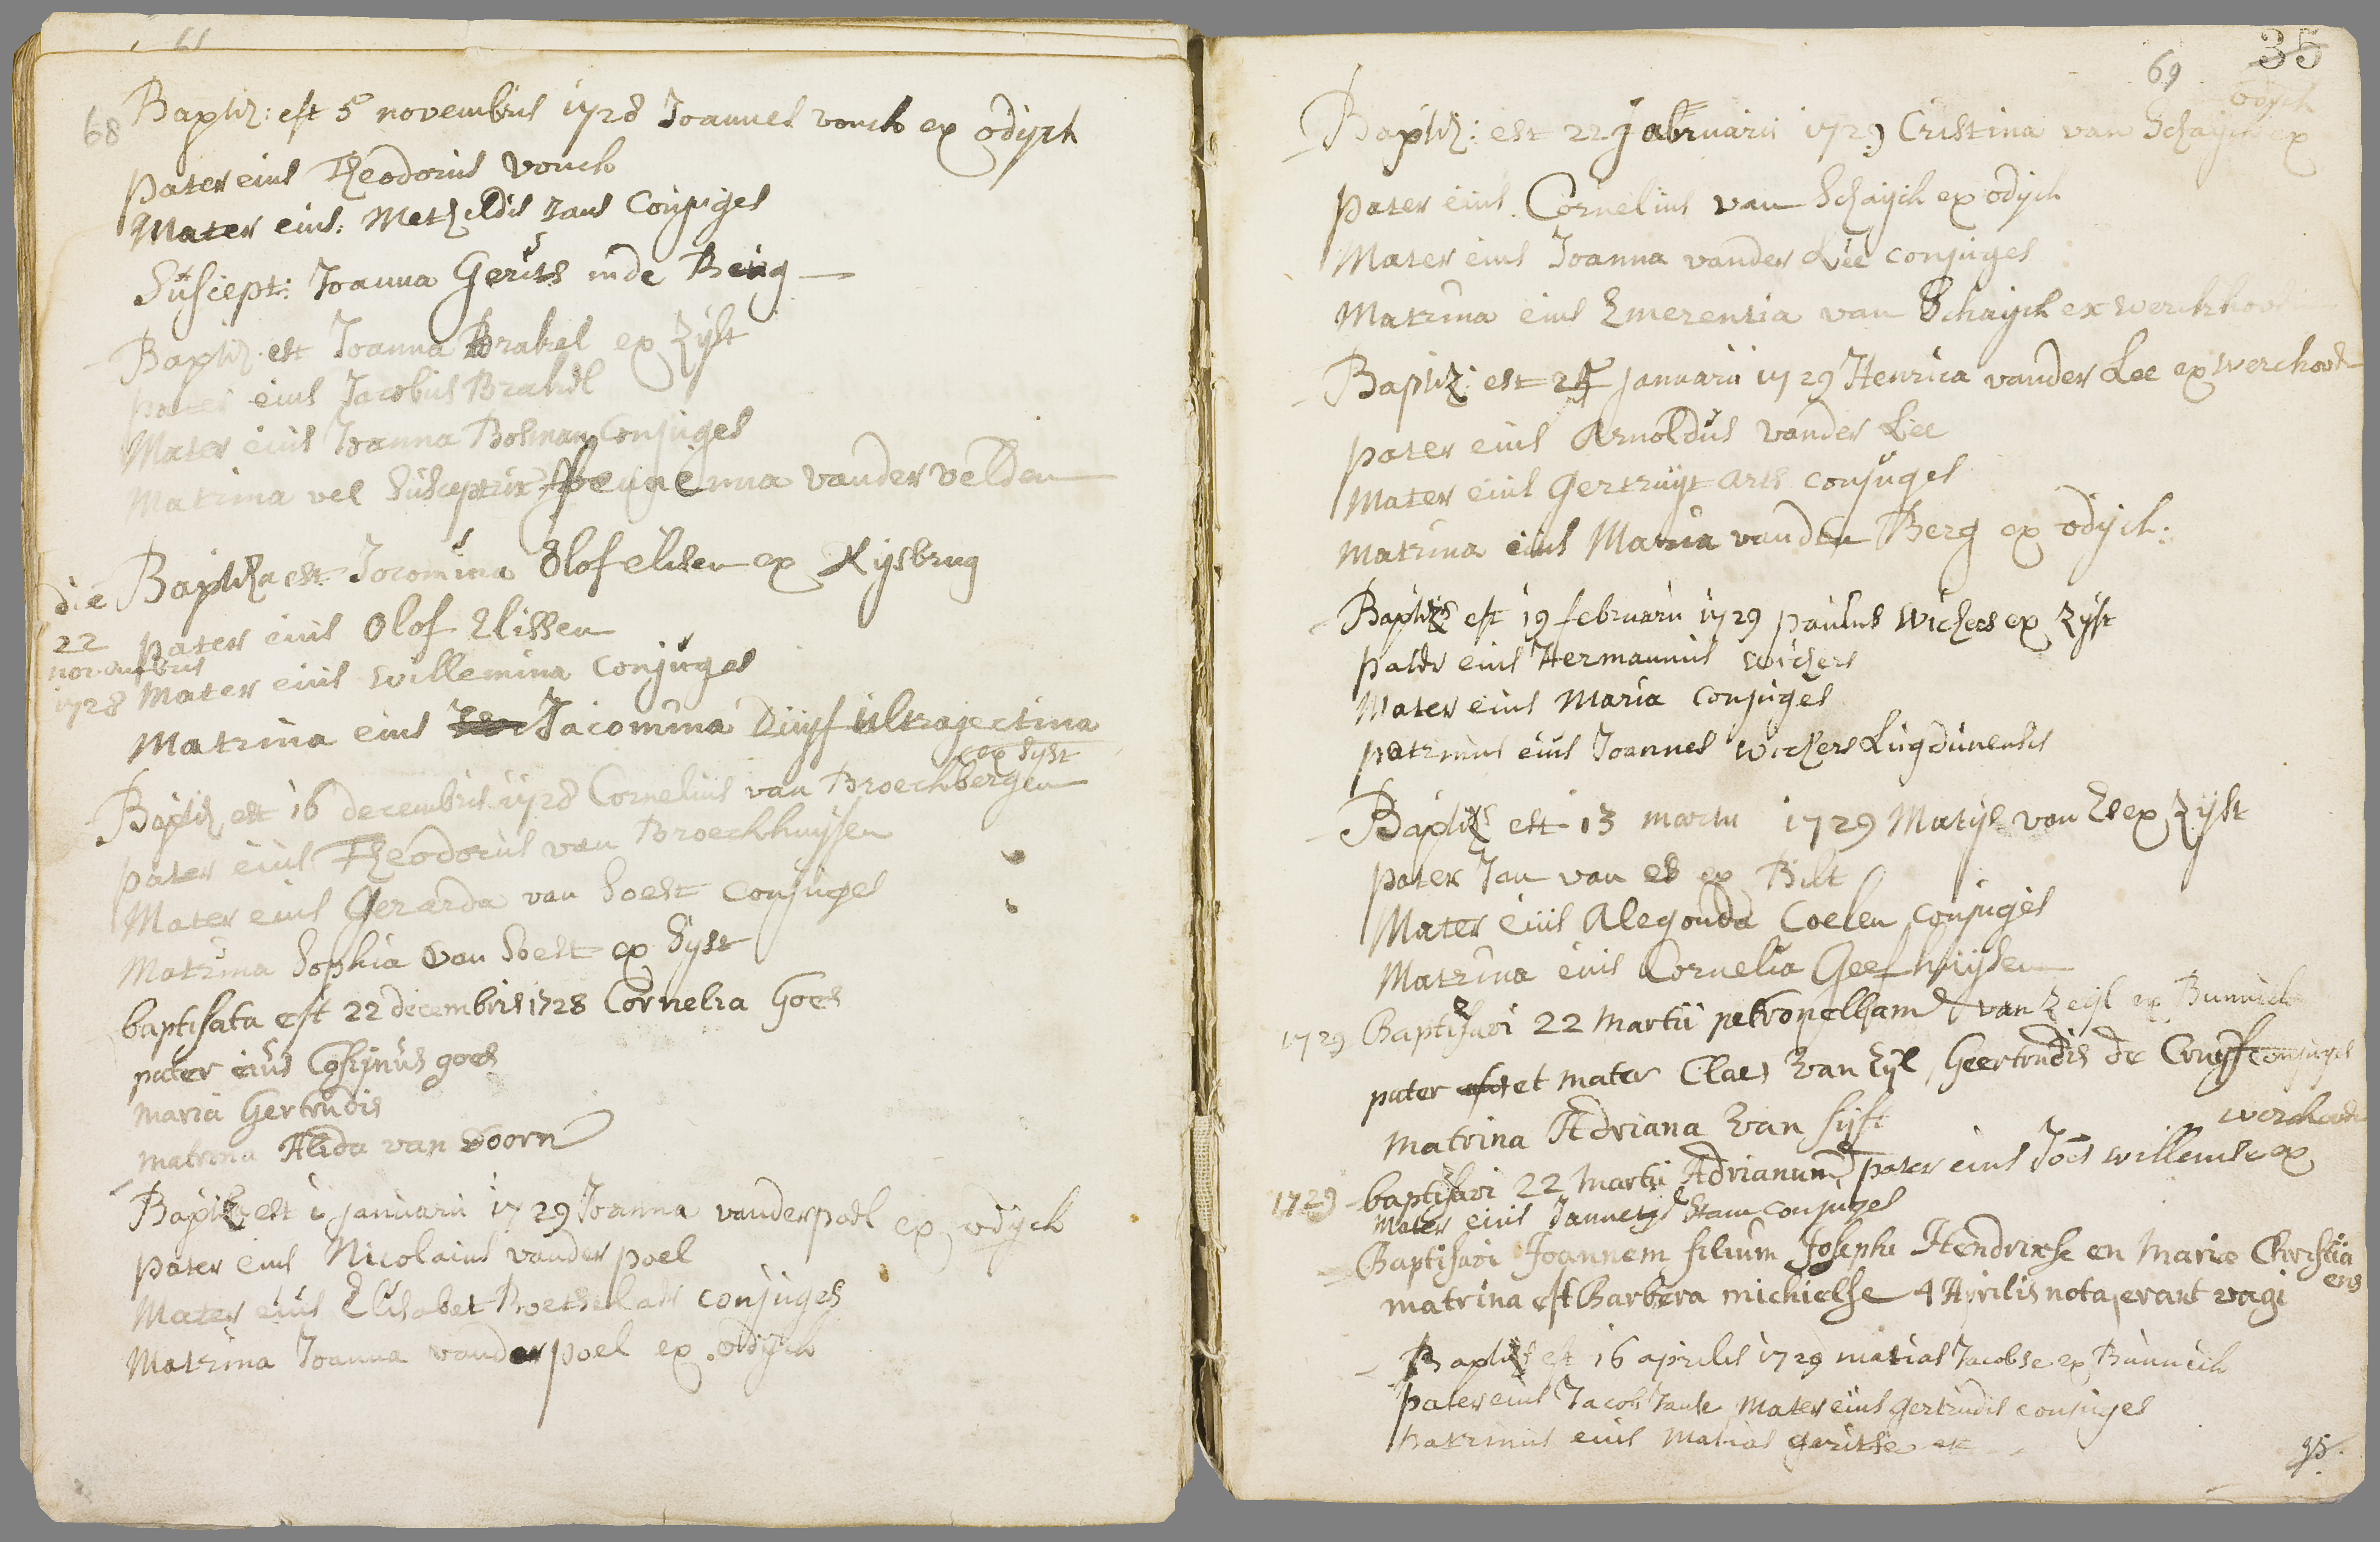 68
Baptiz: est 5 novembris 1728 Joannes vonck ex odijck
pater eius Theodorus vonck
Mater eius: Metheldis Jans Conjuges
Suscept: Joanna Gerits inde Being
Baptiz. est Joanna Brakel ex Zijst
pater eius Jacobus Brakel
Mater eius Joanna Bosman Conjuges
Matrina vel Susceptrix vander velden
die Baptiza est Jocomina Olof elisen ex Rijsbrug
22 pater eius Olof Elissen
novembris
1728 Mater eius willemina Conjuges
Matrina eius Jacomina Duijf ultrajectina
ex Sijst
Baptiz est 16 decembris 1728 Cornelius van Broeckbergen
pater eius Theodorus van Broeckhuijsen
Mater eius Gerarda van Soest Conjuges
Matrina Sophia van Soest ex Sijst
baptisata est 22 decembris 1728 Cornelia Goes
pater eius Cosijnus goes
maria Gertrudis
matrina Alida van doorn
Baptiz est 1 januarii 1729 Joanna vanderpoel ex odijck
pater eius Nicolaius vander poel
Mater eius Elisabet conjuges
Matrina Joanna vander poel ex odijck
69
35
odijck
Baptiz: est 22 1729 Cristina van Schaijck ex
pater eius Cornelius van Schaijck ex odijck
Mater eius Joanna vander Lee conjuges
Matrina eius Emerentia van Schaijck ex werckhove
Baptiz: est 25 januarii 1729 Henrica vander Lee ex werchove
pater eius Arnoldus vander Lee
Mater eius Gertruijt Arts conjuges
Matrina eius Maria vanden Berg ex odijck:
Baptiz est 19 februarii 1729 paulus wichers ex Zijst
pater eius Hermannus wichers
Mater eius Maria conjuges
patrinus eius Joannes wickers Lugdunensis
Baptiz est 13 martii 1729 Matijs van Es ex Zijst
pater Jan van es ex Bilt
Mater eius Alegonda Coelen conjuges
Matrina eius Cornelia Geefhuijsen
1729 Baptisavi 22 Martii petronellam van Zeijl ex Bunnick
pater et mater Claes van Zijl, Geertrudis de Cruijff conjuges
matrina Adriana van sijst
werchove
1729 baptisavi 22 Martii Adrianum pater eius Joes willemse ex
Mater eius Jannetje Stam conjuges
Baptisavi Joannem filium Josephi Hendrixse en Marie Christia
ens
matrina est Barbera michielse 4 Aprilis nota erant vagi
Baptiz est 16 aprilis 1729 matias Jacobse ex Bunnick
pater eius Jacob Janse Mater eius gertrudis conjuges
patrinus eius matias geritse